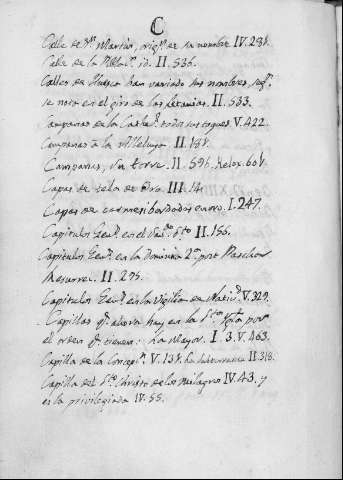 C
Calle de Sn. Martin, orign. de su nombre IV.231.
Calle de la id. II.536.
Calles de Huesca han variado sus nombres, segn.
se nota en el giro de las letanias. II.533.
Campanas en la Cathedl. todos sus toques V.422.
Campanas a la Alleluya. II.131.
Campanas, su torre. II.596. Relox. 601.
Capas de tela de Oro. III.14.
Capas de carmesi bordadas en oro. I.247.
Capitulos Genl. en el II.156.
Capitulos Genl. en la Dominica 2a. post Paschon
Resurrec. II.295.
Capitulos Genl. en la Vigilia de Natividd. V.329.
Capillas qe. ahora hay en la Sta. Yglª. por
el orden qe. tienen: La Mayor. I.3.V.463.
Capilla de la Concepn. V.131. La subterranea II.318.
Capilla del Sto. Christo de los Milagros IV.43. y
es la privilegiada IV.55.